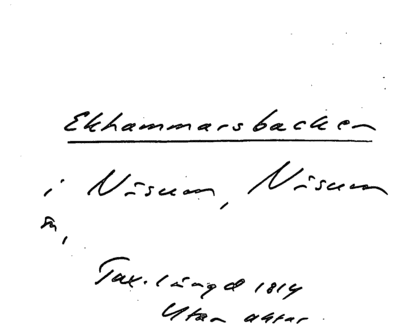 Ekhammarsbacken
i Näsum, Näsum
sn,
Tax.längd 1814
Utan aktnr